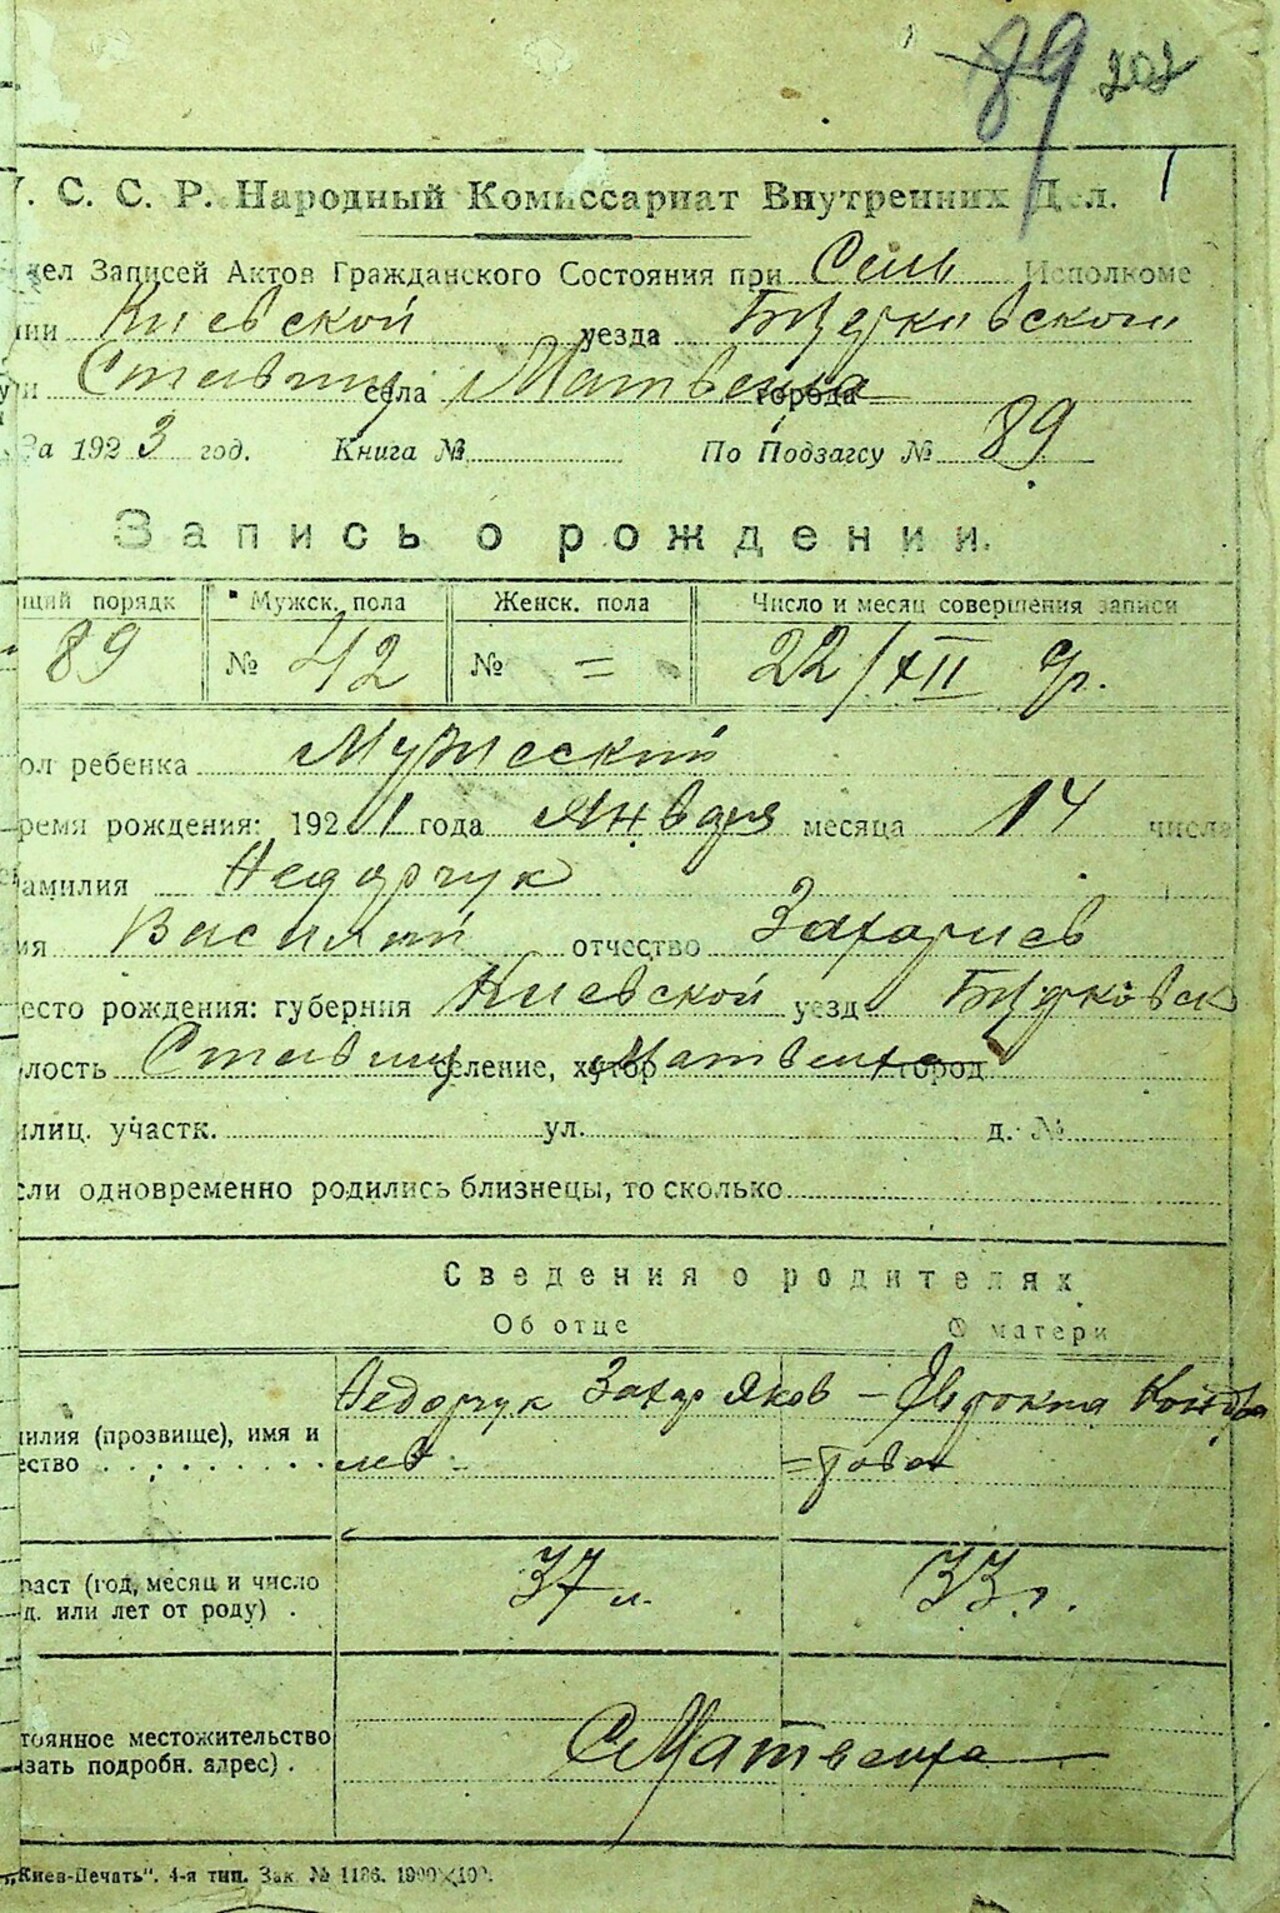 89 202
1
У. С. С. Р. Народный Комиссариат Внутренних Дел.
дел Записей Актов Гражданского Состояния при Сель Исполкоме
нии Киевской уезда БЦерковского
Ставищ села Матвеиха города
За 1923 год. Книга № По Подзагсу № 89
Запись о рождении.
щий порядк Мужск. пола Женск. пола Число и месяц совершения записи
89 № 42 № = 22/XII
ол ребенка Мужеский
ремя рождения: 1921 года Января месяца 14 числа
амилия Недорчук
мя Василий отчество Захариев
есто рождения: губерния Киевской уезд БЦерковск
лость Ставищ селение, хутор Матвеиха город
илиц. участк. ул. д. №
сли одновременно родились близнецы, то сколько
Сведения о родителях
Об отце О матери
Недорчук Захар Яков – Евдокия Кондра
милия (прозвище), имя и
ество лев = това
37 л. 33 г.
раст (год, месяц и число
д. или лет от роду) .
тоянное местожительство
зать подробн. адрес) . С Матвеиха
„Киев-Печать". 4-я тип. Зак. № 1186.